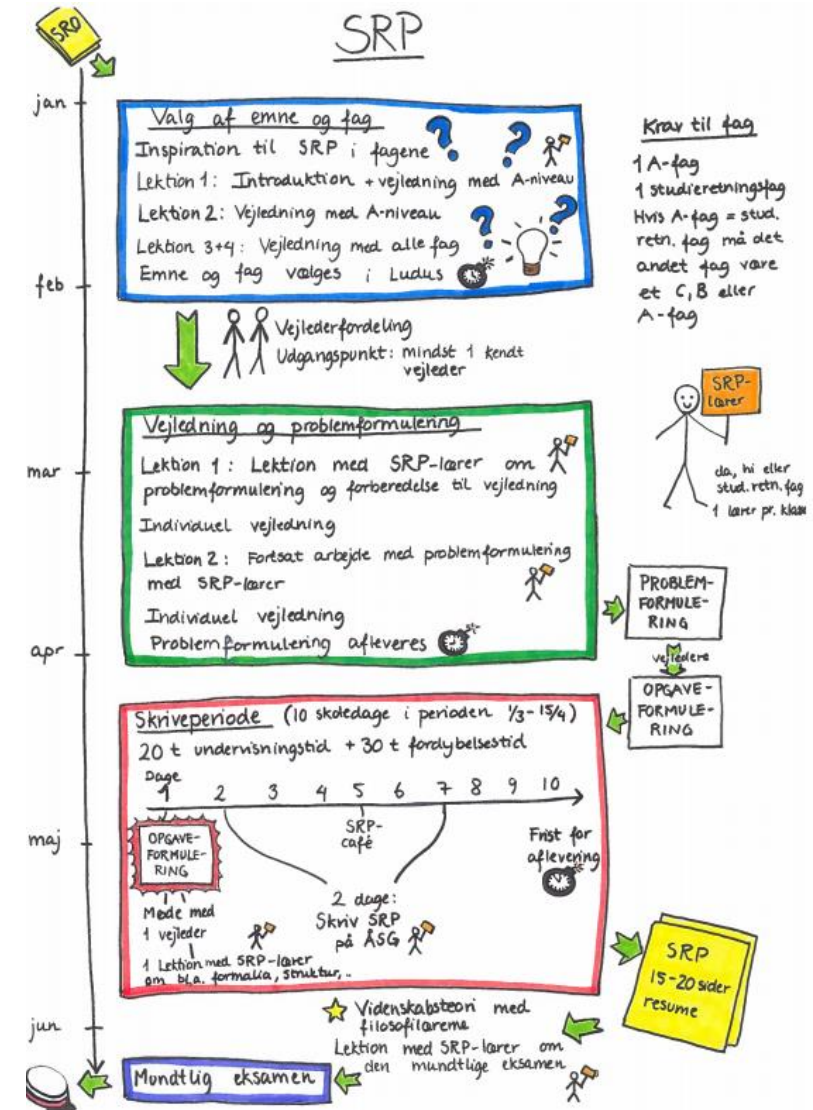 SRO
SRP
jan
Valg af emne og fag
Inspiration til SRP i fagene
Lektion 1: Introduktion + vejledning med A-niveau
Lektion 2: Vejledning med A-niveau
Lektion 3+4: Vejledning med alle fag
Emne og fag vælges i Ludus
Krav til fag
1 A-fag
1 studieretningsfag
Hvis A-fag = stud.
retn. fag må det
andet fag være
et C, B eller
A-fag
feb
Vejlederfordeling
Udgangspunkt: mindst 1 kendt
vejleder
SRP-
lærer
da, hi eller
stud. retn. fag
1 lærer pr. klasse
Vejledning og problemformulering
mar
Lektion 1: Lektion med SRP-lærer om
problemformulering og forberedelse til vejledning
Individuel vejledning
Lektion 2: Fortsat arbejde med problemformulering
med SRP-lærer
Individuel vejledning
Problemformulering afleveres
apr
PROBLEM-
FORMULE-
RING
vejledere
OPGAVE-
FORMULE-
RING
Skriveperiode (10 skoledage i perioden 1/3 - 15/4)
20 t undervisningstid + 30 t fordybelsestid
Dage
1 2 3 4 5 6 7 8 9 10
maj
OPGAVE-
FORMULE-
RING
SRP-
café
Frist for
aflevering
Møde med
1 vejleder
2 dage:
Skriv SRP
på ÅSG
1 Lektion med SRP-lærer
om bl.a. formalia, struktur,..
SRP
15-20 sider
resume
jun
Videnskabsteori med
filosofilærerne
Lektion med SRP-lærer om
den mundtlige eksamen
Mundtlig eksamen